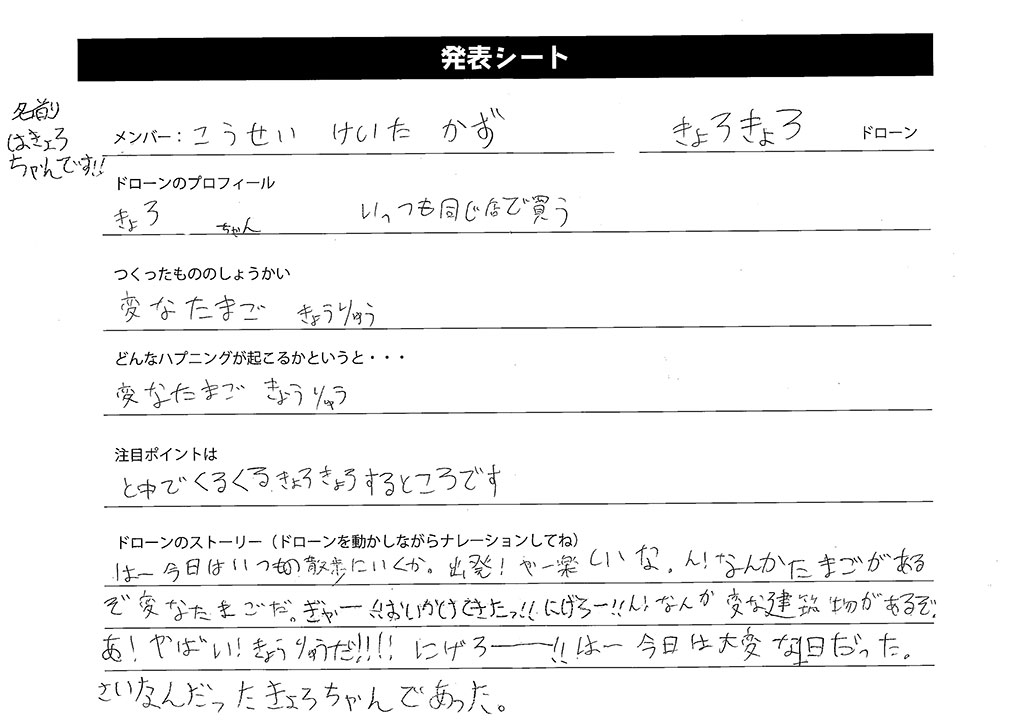 発表シート
名前り
はきょろ
ちゃんです!!
メンバー：こうせい けいた かず
きょろきょろ ドローン
ドローンのプロフィール
きょろ ちゃん いっつも同じ店で買う
つくったもののしょうかい
変なたまご きょうりゅう
どんなハプニングが起こるかというと・・・
変なたまご きょうりゅう
注目ポイントは
と中でくるくるきょろきょろするところです
ドローンのストーリー（ドローンを動かしながらナレーションしてね）
はー今日はいつもの散歩にいくか。出発！やー楽しいな。ん！なんかたまごがある
ぞ変なたまごだ。ぎゃー!!おいかけてきたっ!!にげろー!!ん！なんか変な建築物があるぞ。
あ！やばい！きょうりゅうだ!!!! にげろー!! はー今日は大変な1日だった。
さいなんだったきょろちゃんであった。